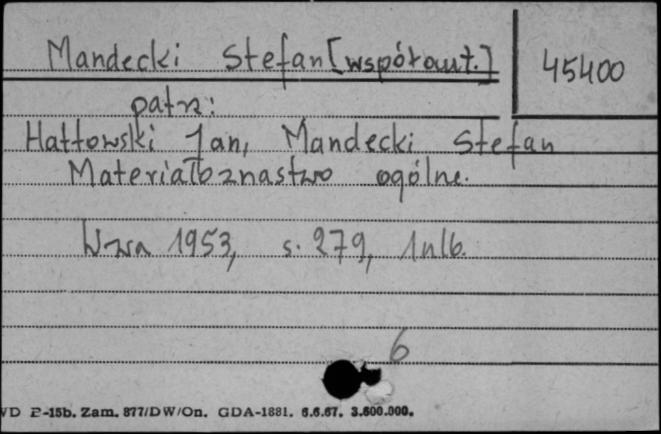 Mandecki Stefan [współaut.]
45400
patrz:
Hattowski Jan, Mandecki Stefan
Materiałoznastwo ogólne.
W-wa 1953, s. 279, 1 nlb.
6
WD P-15b. Zam. 877/DW/On. GDA-1881. 6.6.67. 3.600.000.